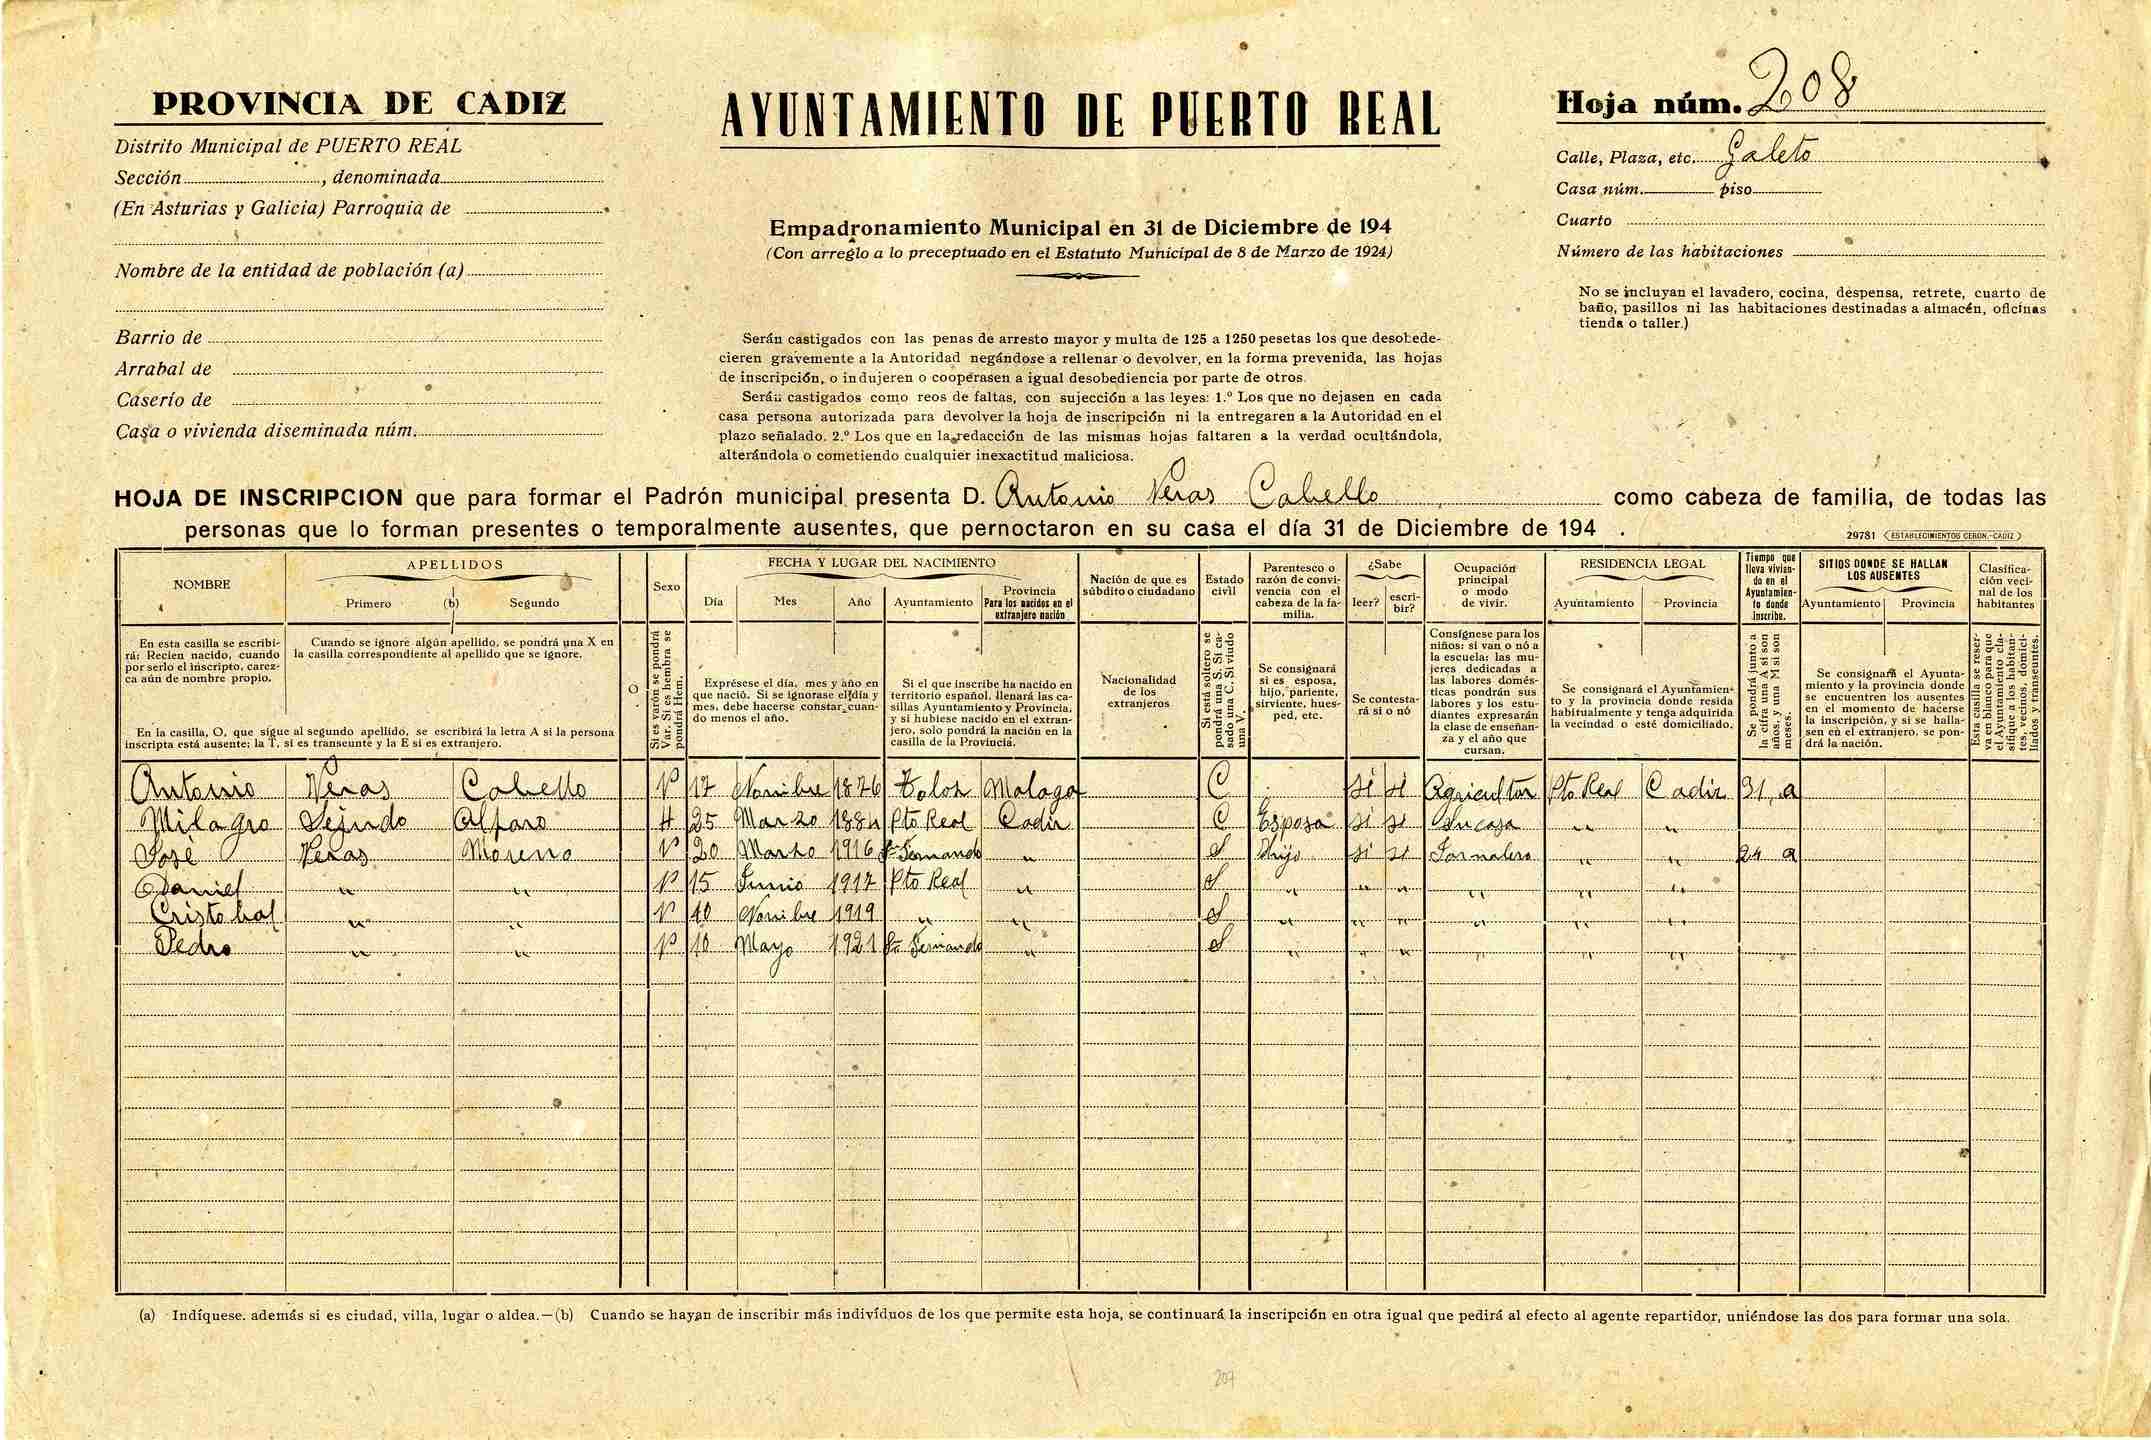 PROVINCIA DE CADIZ
Distrito Municipal de PUERTO REAL
Sección , denominada
(En Asturias y Galicia) Parroquia de
Nombre de la entidad de población (a)
Barrio de
Arrabal de
Caserío de
Casa o vivienda diseminada núm.
AYUNTAMIENTO DE PUERTO REAL
Empadronamiento Municipal en 31 de Diciembre de 194
(Con arreglo a lo preceptuado en el Estatuto Municipal de 8 de Marzo de 1924)
Serán castigados con las penas de arresto mayor y multa de 125 a 1250 pesetas los que desobede-
cieren gravemente a la Autoridad negándose a rellenar o devolver, en la forma prevenida, las hojas
de inscripción, o indujeren o cooperasen a igual desobediencia por parte de otros.
Serán castigados como reos de faltas, con sujección a las leyes: 1.º Los que no dejasen en cada
casa persona autorizada para devolver la hoja de inscripción ni la entregaren a la Autoridad en el
plazo señalado. 2.º Los que en la redacción de las mismas hojas faltaren a la verdad ocultándola,
alterándola o cometiendo cualquier inexactitud maliciosa.
Hoja núm. 208
Calle, Plaza, etc. Galeto
Casa núm. piso
Cuarto
Número de las habitaciones
No se incluyan el lavadero, cocina, despensa, retrete, cuarto de
baño, pasillos ni las habitaciones destinadas a almacén, oficinas
tienda o taller.)
HOJA DE INSCRIPCION que para formar el Padrón municipal presenta D. Antonio Veras Cabello como cabeza de familia, de todas las
personas que lo forman presentes o temporalmente ausentes, que pernoctaron en su casa el día 31 de Diciembre de 194 .
29781 ESTABLECIMIENTOS CERON.-CADIZ
NOMBRE
APELLIDOS
Primero (b) Segundo
O
Sexo
FECHA Y LUGAR DEL NACIMIENTO
Día Mes Año Ayuntamiento
Provincia
Para los nacidos en el
extranjero nación
Nación de que es
súbdito o ciudadano
Estado
civil
Parentesco o
razón de convi-
vencia con el
cabeza de la fa-
milia.
¿Sabe
leer? escri-
bir?
Ocupación
principal
o modo
de vivir.
RESIDENCIA LEGAL
Ayuntamiento Provincia
Tiempo que
lleva vivien-
do en el
Ayuntamien-
to donde
inscribe.
SITIOS DONDE SE HALLAN
LOS AUSENTES
Ayuntamiento Provincia
Clasifica-
ción veci-
nal de los
habitantes
En esta casilla se escribi-
rá: Recien nacido, cuando
por serlo el inscripto, carez-
ca aún de nombre propio.
Cuando se ignore algún apellido, se pondrá una X en
la casilla correspondiente al apellido que se ignore.
En la casilla, O, que sigue al segundo apellido, se escribirá la letra A si la persona
inscripta está ausente; la T, si es transeunte y la E si es extranjero.
Si es varón se pondrá
Var. Si es hembra se
pondrá Hem.
Exprésese el día, mes y año en
que nació. Si se ignorase el día y
mes, debe hacerse constar cuan-
do menos el año.
Si el que inscribe ha nacido en
territorio español, llenará las ca-
sillas Ayuntamiento y Provincia,
y si hubiese nacido en el extran-
jero, solo pondrá la nación en la
casilla de la Provincia.
Nacionalidad
de los
extranjeros
Si está soltero se
pondrá una S. Si ca-
sado una C. Si viudo
una V.
Se consignará
si es esposa,
hijo, pariente,
sirviente, hues-
ped, etc.
Se contesta-
rá si o nó
Consígnese para los
niños: si van o nó a
la escuela: las mu-
jeres dedicadas a
las labores domés-
ticas pondrán sus
labores y los estu-
diantes expresarán
la clase de enseñan-
za y el año que
cursan.
Se consignará el Ayuntamien-
to y la provincia donde resida
habitualmente y tenga adquirida
la vecindad o esté domiciliado.
Se pondrá junto a
la cifra una A si son
años, y una M si son
meses.
Se consignará el Ayunta-
miento y la provincia donde
se encuentren los ausentes
en el momento de hacerse
la inscripción, y si se halla-
sen en el extranjero, se pon-
drá la nación.
Esta casilla se reser-
va en blanco para que
el Ayuntamiento cla-
sifique a los habitan-
tes, vecinos, domici-
liados y transeuntes.
Antonio Veras Cabello V 17 Noviembre 1876 Tolox Malaga C si si Agricultor Pto Real Cadiz 31 a
Milagro Sejudo Alfaro H 25 Marzo 1884 Pto Real Cadiz C Esposa si si Su casa " "
José Veras Moreno V 20 Marzo 1916 Sn Fernando " S Hijo si si Jornalero " " 24 a
Daniel " " V 15 Junio 1917 Pto Real " S " " " " " " "
Cristobal " " V 10 Novibre 1919 " " S " " " " " " "
Pedro " " V 10 Mayo 1921 Sn Fernando " S " " " " " " "
(a) Indíquese. además si es ciudad, villa, lugar o aldea.—(b) Cuando se hayan de inscribir más individuos de los que permite esta hoja, se continuará la inscripción en otra igual que pedirá al efecto al agente repartidor, uniéndose las dos para formar una sola.
207